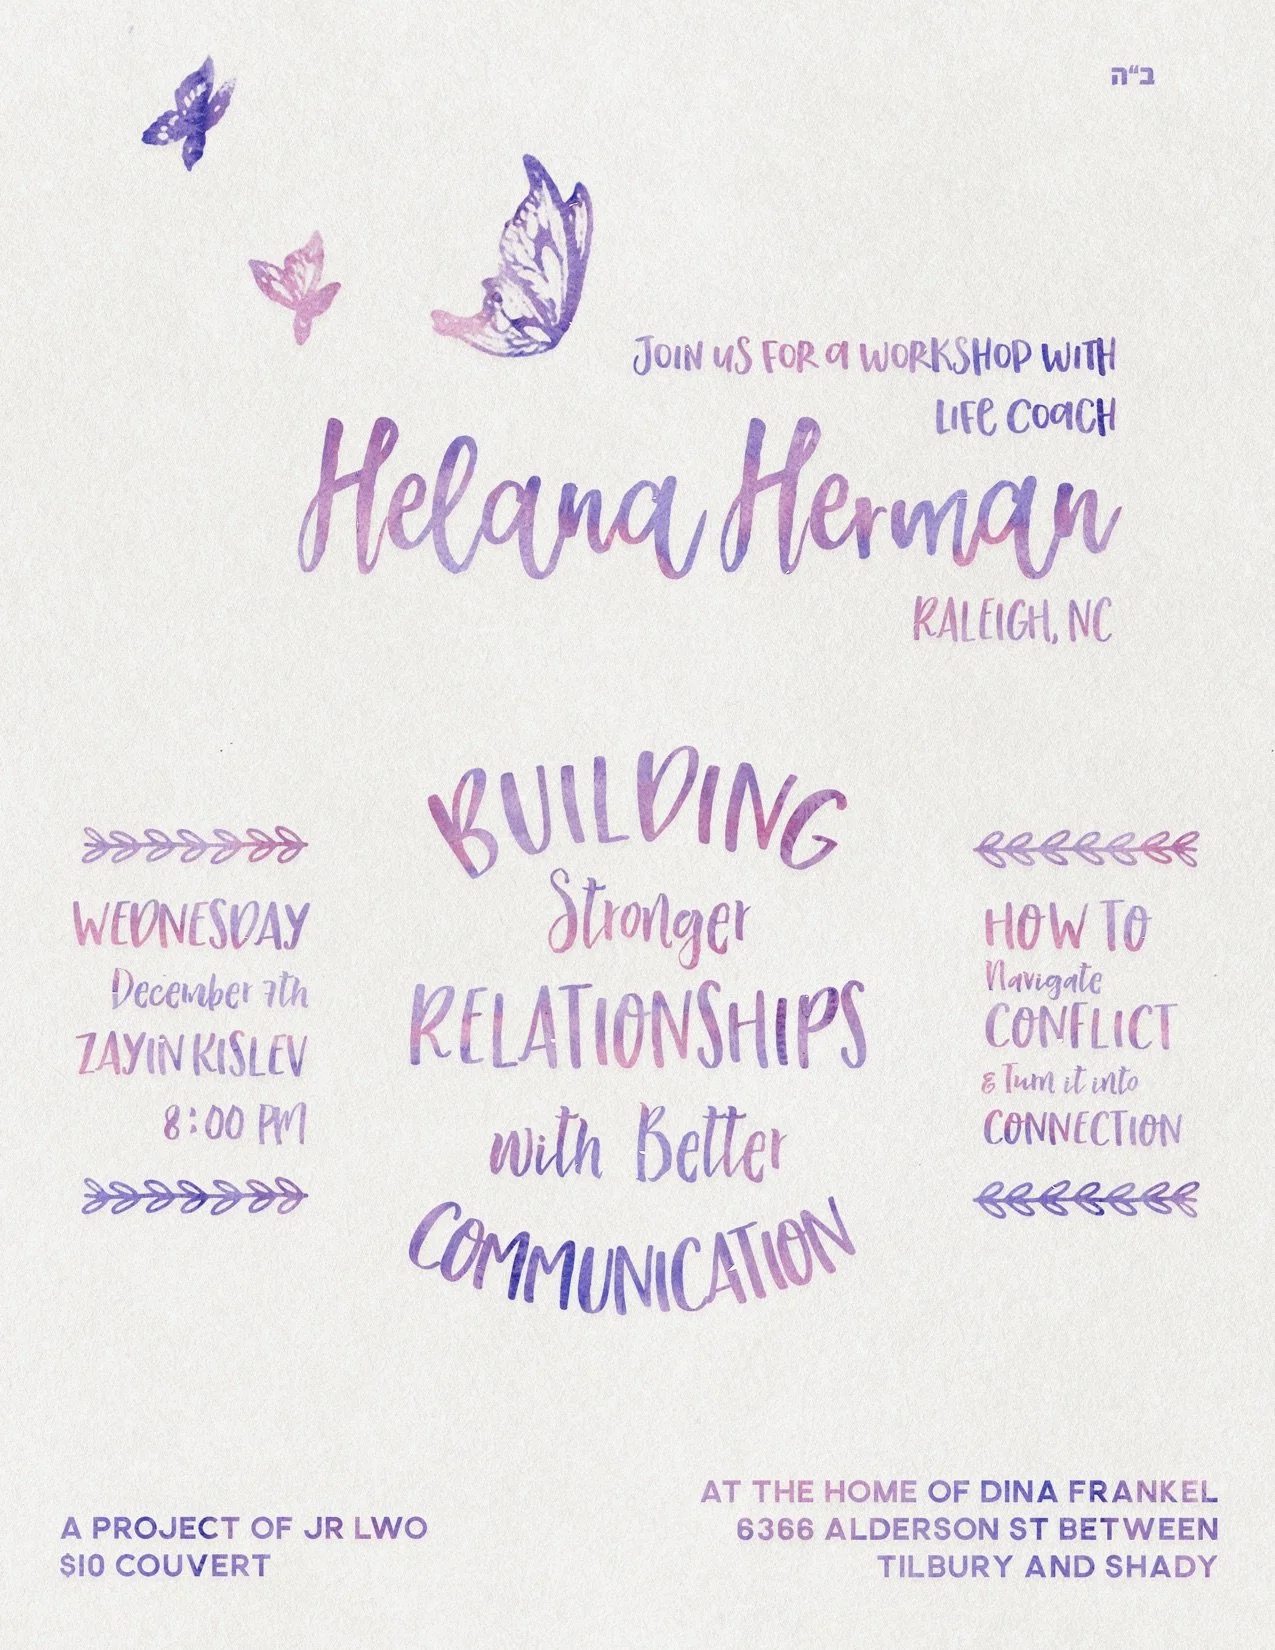 ב"ה
JOIN US FOR A WORKSHOP WITH
LIFE COACH
Helana Herman
RALEIGH, NC
BUILDING
Stronger
RELATIONSHIPS
with Better
COMMUNICATION
WEDNESDAY
December 7th
ZAYIN KISLEV
8:00 PM
HOW TO
Navigate
CONFLICT
& Turn it into
CONNECTION
A PROJECT OF JR LWO
$10 COUVERT
AT THE HOME OF DINA FRANKEL
6366 ALDERSON ST BETWEEN
TILBURY AND SHADY